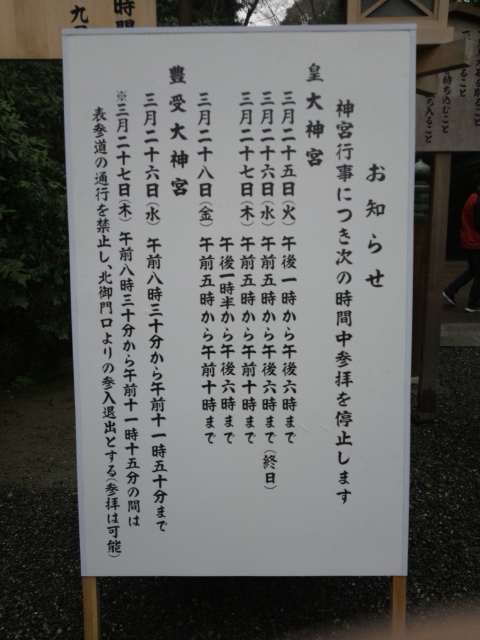 お知らせ
神宮行事につき次の時間中参拝を停止します
皇大神宮
三月二十五日(火) 午後一時から午後六時まで
三月二十六日(水) 午前五時から午後六時まで(終日)
三月二十七日(木) 午前五時から午前十時まで
午後一時半から午後六時まで
三月二十八日(金) 午前五時から午前十時まで
豊受大神宮
三月二十六日(水) 午前八時三十分から午前十一時五十分まで
※三月二十七日(木) 午前八時三十分から午前十一時十五分の間は
表参道の通行を禁止し、北御門口よりの参入退出とする(参拝は可能)
時間
九
持ち込むこと
ち入ること